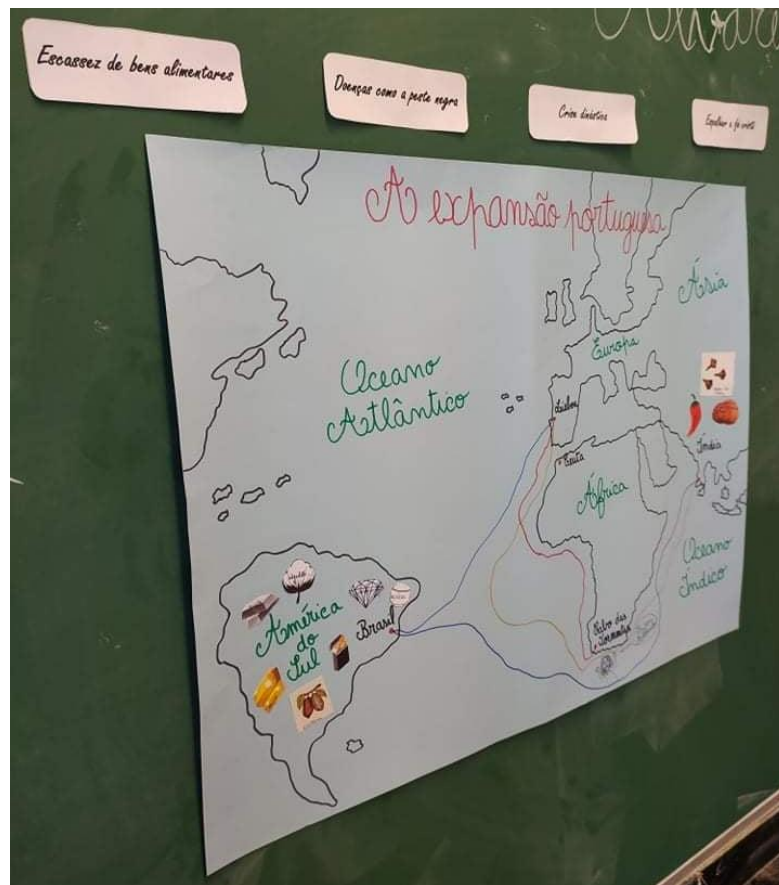 Escassez de bens alimentares
Doenças como a peste negra
Crise dinástica
Espalhar a fé cristã
A expansão portuguesa
Ásia
Europa
Oceano
Atlântico
Lisboa
Índia
Ceuta
África
Oceano
Índico
América
do
Sul
Brasil
Cabo das
Tormentas